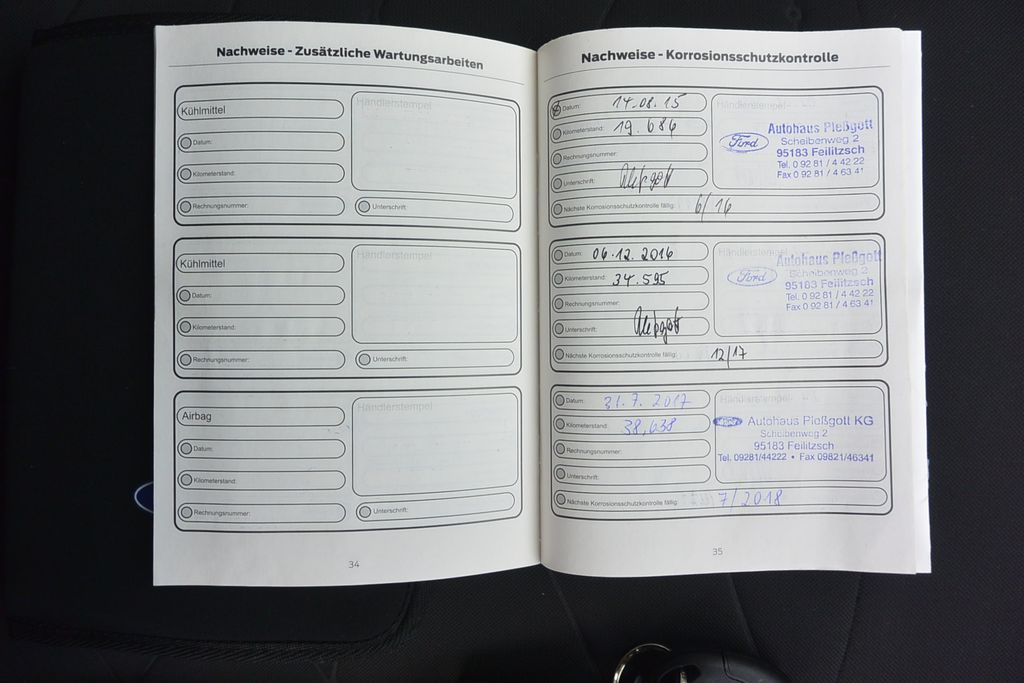 Nachweise - Zusätzliche Wartungsarbeiten
Kühlmittel
Händlerstempel
Datum:
Kilometerstand:
Rechnungsnummer:
Unterschrift:
Kühlmittel
Händlerstempel
Datum:
Kilometerstand:
Rechnungsnummer:
Unterschrift:
Airbag
Händlerstempel
Datum:
Kilometerstand:
Rechnungsnummer:
Unterschrift:
34
Nachweise - Korrosionsschutzkontrolle
Datum: 14.08.15
Kilometerstand: 19.684
Rechnungsnummer:
Unterschrift:
Nächste Korrosionsschutzkontrolle fällig: 6/16
Händlerstempel
Ford
Autohaus Pleßgott
Scheibenweg 2
95183 Feilitzsch
Tel. 0 92 81 / 4 42 22
Fax 0 92 81 / 4 63 41
Datum: 06.12.2016
Kilometerstand: 34.595
Rechnungsnummer:
Unterschrift:
Nächste Korrosionsschutzkontrolle fällig: 12/17
Händlerstempel
Ford
Autohaus Pleßgott
Scheibenweg 2
95183 Feilitzsch
Tel. 0 92 81 / 4 42 22
Fax 0 92 81 / 4 63 41
Datum: 31.7.2017
Kilometerstand: 38,638
Rechnungsnummer:
Unterschrift:
Nächste Korrosionsschutzkontrolle fällig: 7/2018
Händlerstempel
Ford Autohaus Pleßgott KG
Scheibenweg 2
95183 Feilitzsch
Tel. 09281/44222 • Fax 09821/46341
35